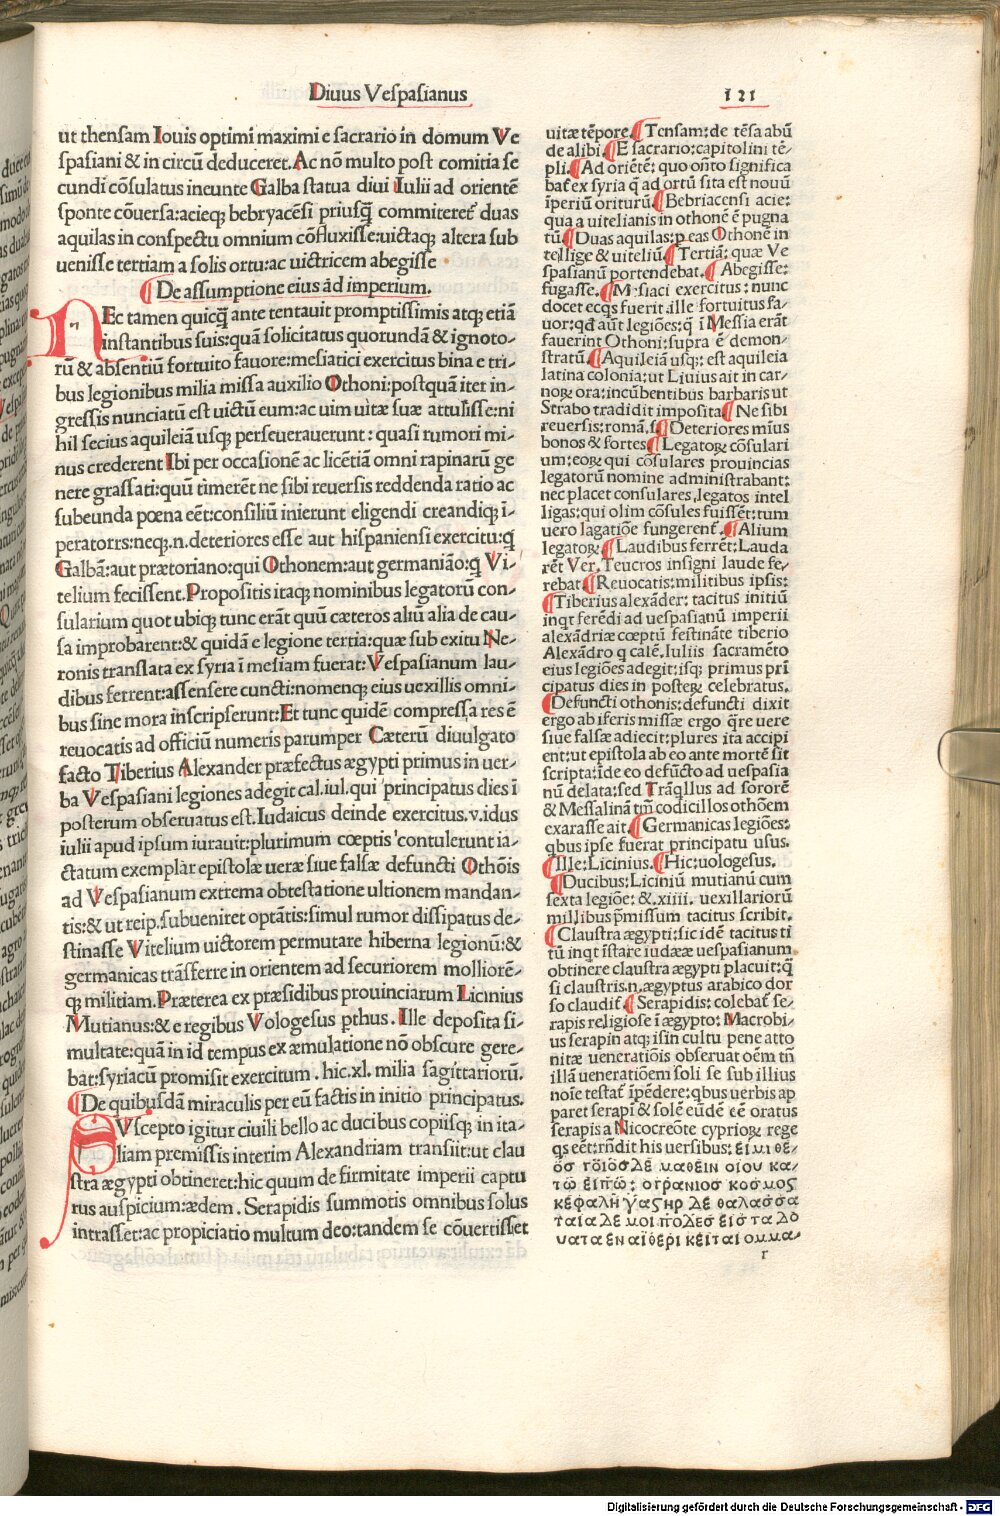 Diuus Vespasianus
121
ut thensam Iouis optimi maximi e sacrario in domum Ve
spasiani & in circũ deduceret. Ac nõ multo post comitia se
cundi cõsulatus ineunte Galba statua diui Iulii ad orientẽ
sponte cõuersa: acieqꝫ bebryacẽsi priusq̃ committeret᷑ duas
aquilas in conspectu omnium cõfluxisse: uictaqꝫ altera sub
uenisse tertiam a solis ortu: ac uictricem abegisse
¶ De assumptione eius ad imperium.
NEc tamen quicq̃ ante tentauit promptissimis atqꝫ etiã
instantibus suis: quã solicitatus quorundã & ignoto-
rũ & absentiũ fortuito fauore: mesiatici exercitus bina e tri-
bus legionibus milia missa auxilio Othoni: postquã iter in-
gressis nunciatũ est uictũ eum: ac uim uitæ suæ attulisse: ni
hil secius aquileiã usqꝫ perseuerauerunt: quasi rumori mi-
nus crederent Ibi per occasionẽ ac licẽtiã omni rapinarũ ge
nere grassati: quũ timerẽt ne sibi reuersis reddenda ratio ac
subeunda pœna eẽt: consiliũ inierunt eligendi creandiqꝫ ĩ-
peratorrs: neqꝫ.n. deteriores esse aut hispaniensi exercitu: q̃
Galbã: aut prætoriano: qui Othonem: aut germaniãο: q̃ Vi-
telium fecissent. Propositis itaqꝫ nominibus legatorũ con-
sularium quot ubiqꝫ tunc erãt quũ cæteros aliũ alia de cau-
sa improbarent: & quidã e legione tertia: quæ sub exitu Ne-
ronis translata ex syria ĩ mesiam fuerat: Vespasianum lau-
dibus ferrent: assensere cuncti: nomenqꝫ eius uexillis omni-
bus sine mora inscripserunt: Et tunc quidẽ compressa res ẽ
reuocatis ad officiũ numeris parumper Cæterũ diuulgato
facto Tiberius Alexander præfectus ægypti primus in uer-
ba Vespasiani legiones adegit cal. iul. qui principatus dies ĩ
posterum obseruatus est. Iudaicus deinde exercitus. v. idus
iulii apud ipsum iurauit: plurimum cœptis contulerunt ia-
ctatum exemplar epistolæ ueræ siue falsæ defuncti Othõis
ad Vespasianum extrema obtestatione ultionem mandan-
tis: & ut reip. subueniret optãtis: simul rumor dissipatus de-
stinasse Vitelium uictorem permutare hiberna legionũ: &
germanicas trãsferre in orientem ad securiorem molliorẽ-
qꝫ militiam. Præterea ex præsidibus prouinciarum Licinius
Mutianus: & e regibus Vologesus pthus. Ille deposita si-
multate: quã in id tempus ex æmulatione nõ obscure gere-
bat: syriacũ promisit exercitum. hic. xl. milia sagittariorũ.
¶ De quibusdã miraculis per eũ factis in initio principatus.
SVscepto igitur ciuili bello ac ducibus copiisqꝫ in ita-
liam premissis interim Alexandriam transiit: ut clau
stra ægypti obtineret: hic quum de firmitate imperii captu
rus auspicium: ædem. Serapidis summotis omnibus solus
intrasset: ac propiciato multum deo: tandem se cõuertisset
uitæ tẽpore. ¶ Tensam: de tẽsa abũ
de alibi. ¶ E sacrario: capitolini tẽ-
pli. ¶ Ad oriẽtẽ: quo oñto significa
bat᷑ ex syria q̃ ad ortũ sita est nouũ
ĩperiũ oriturũ. ¶ Bebriacensi acie:
qua a uitelianis in othonẽ ẽ pugna
tũ. ¶ Duas aquilas: p eas Othonẽ in
tellige & uiteliũ. ¶ Tertiã: quæ Ve
spasianũ portendebat. ¶ Abegisse:
fugasse. ¶ Mœsiaci exercitus: nunc
docet ecqs fuerit ille fortuitus fa-
uor: qd aũt legiões: q̃ ĩ Messia erãt
fauerint Othoni: supra ẽ demon-
stratũ. ¶ Aquileiã usqꝫ: est aquileia
latina colonia: ut Liuius ait in car-
noꝝ ora: incũbentibus barbaris ut
Strabo tradidit imposita ¶ Ne sibi
reuersis: romã. s. ¶ Deteriores mĩus
bonos & fortes ¶ Legatoꝝ cõsulari
um: eoꝝ qui cõsulares prouincias
legatorũ nomine administrabant:
nec placet consulares, legatos intel
ligas: qui olim cõsules fuissẽt: tum
uero lagatiõe fungerent᷑. ¶ Alium
legatoꝝ ¶ Laudibus ferrẽt: Lauda
rẽt Ver. Teucros insigni laude fe-
rebat ¶ Reuocatis: militibus ipsis:
¶ Tiberius alexãder: tacitus initiũ
inqt ferẽdi ad uespasianũ imperii
alexãdriæ cœptũ festinãte tiberio
Alexãdro q calẽ. Iuliis sacramẽto
eius legiões adegit: isqꝫ primus prĩ
cipatus dies in posteꝝ celebratus.
¶ Defuncti othonis: defuncti dixit
ergo ab iferis missæ ergo q̃re uere
siue falsæ adiecit: plures ita accipi
ent: ut epistola ab eo ante mortẽ sit
scripta: ide eo defũcto ad uespasia
nũ delata: sed Trãqllus ad sororẽ
& Messalinã tm̃ codicillos othõem
exarasse ait. ¶ Germanicas legiões:
qbus ipse fuerat principatu usus.
¶ Ille: Licinius. ¶ Hic: uologesus.
¶ Ducibus: Liciniũ mutianũ cum
sexta legiõe: &. xiiii. uexillariorũ
millibus p̃missum tacitus scribit.
¶ Claustra ægypti: sic idẽ tacitus ti
tũ inqt ĩstare iudææ uespasianum
obtinere claustra ægypti placuit: q̃
si claustris. n. ægyptus arabico dor
so claudit᷑. ¶ Serapidis: colebat᷑ se-
rapis religiose ĩ ægypto: Macrobi-
us serapin atqꝫ isin cultu pene atto
nitæ ueneratiõis obseruat oẽm tñ
illã ueneratiõem soli se sub illius
noĩe testat᷑ ĩpẽdere: qbus uerbis ap
paret serapĩ & solẽ eũdẽ eẽ oratus
serapis a Nicocreõte cyprioꝝ rege
qs eẽt: rñdit his uersibus: ειμι θε-
ὸσ τὸῖὸσΔε μαθειν οιου κα-
τω ειπῶ: ουρανιοσ κοσμος
κεφαλὴ γαςηρ Δε θαλασσα
ταια Δε μοι πὸΔεσ εισ τα Δο
υατα εν αιθερι κειται ομμα-
r
Digitalisierung gefördert durch die Deutsche Forschungsgemeinschaft - DFG